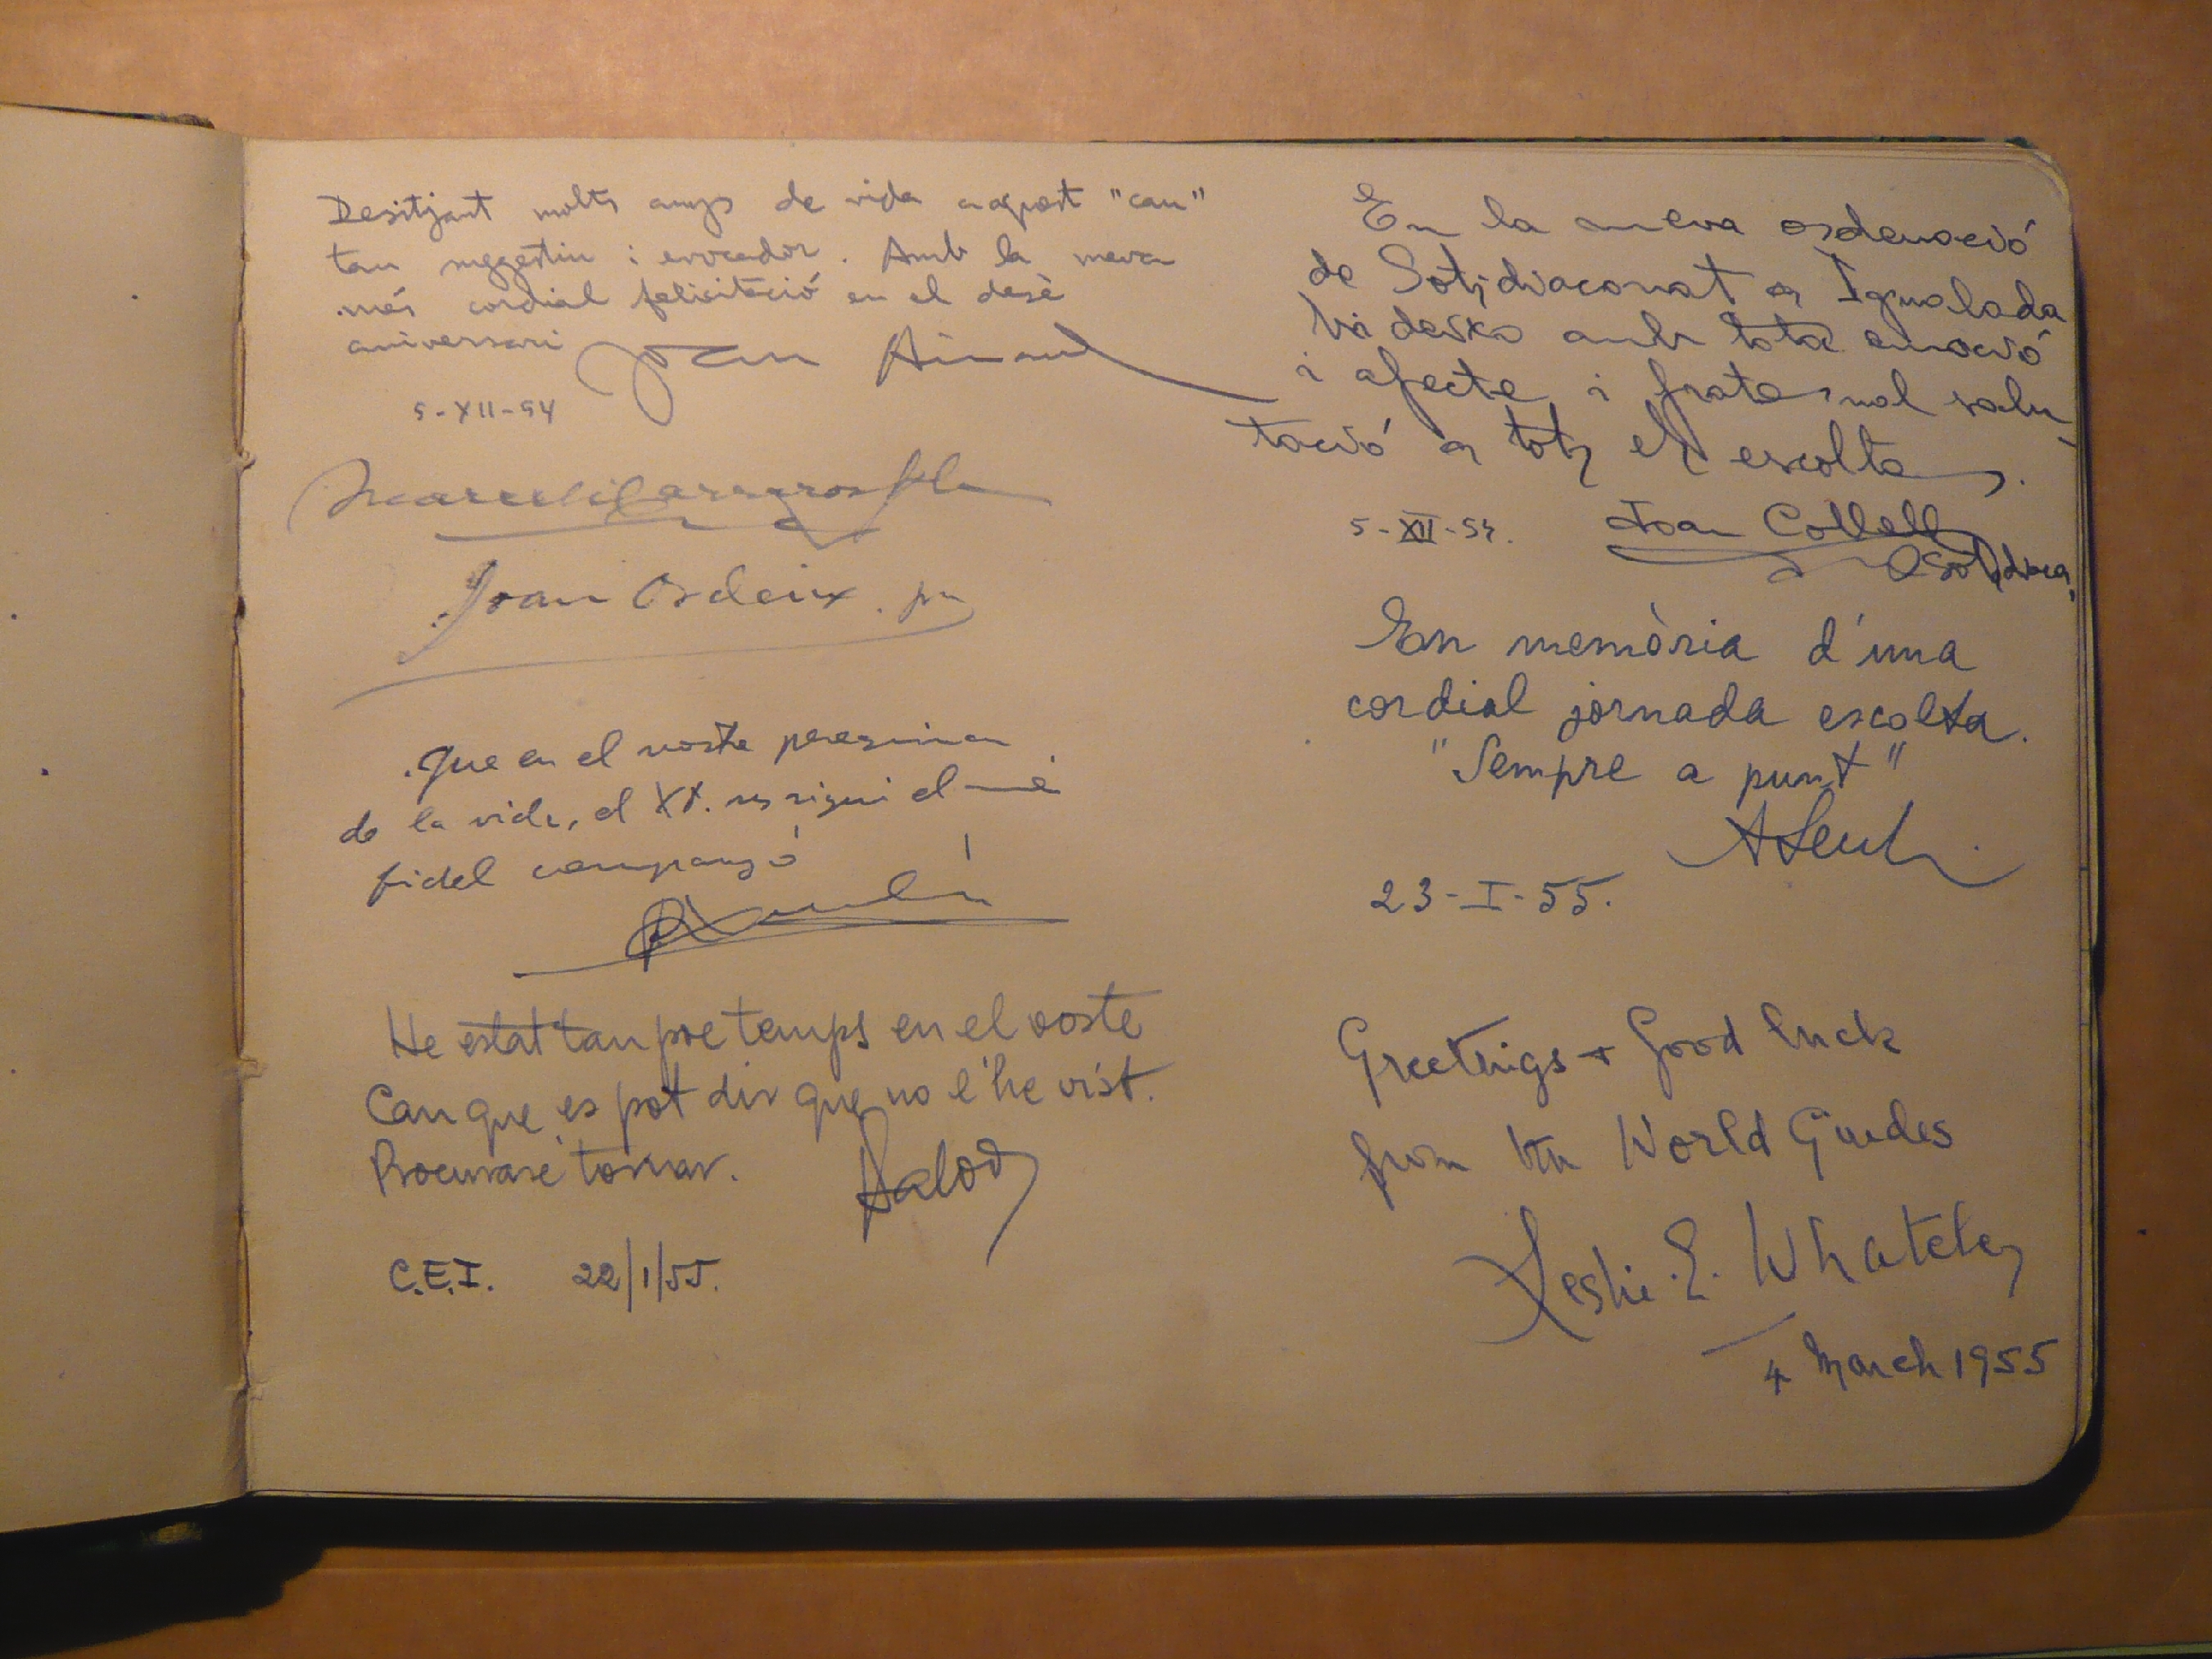 Desitjant molts anys de vida a aquest "cau"
tan suggestiu i evocador. Amb la meva
més cordial felicitació en el desè
aniversari Joan Ainaud
5-XII-54
Joan Ordeix. pv
Que en el vostre peregrinar
de la vida, el XX. us sigui el mé
fidel company ó
He estat tan poc temps en el voste
Cau que es pot dir que no l'he vist.
Procuraré tornar.
C.E.I. 22/1/55.
En la meva ordenació
de Sotsdiaconat a Igualada
hi deixo amb tota emoció
i afecte i fraternal salu-
tació a tots els escoltes.
5-XII-54. Joan Collell
Sotsdiaca
En memòria d'una
cordial jornada escolta.
"Sempre a punt"
23-I-55.
Greetings + Good luck
from the World Guides
Leslie E. Whateley
4 March 1955